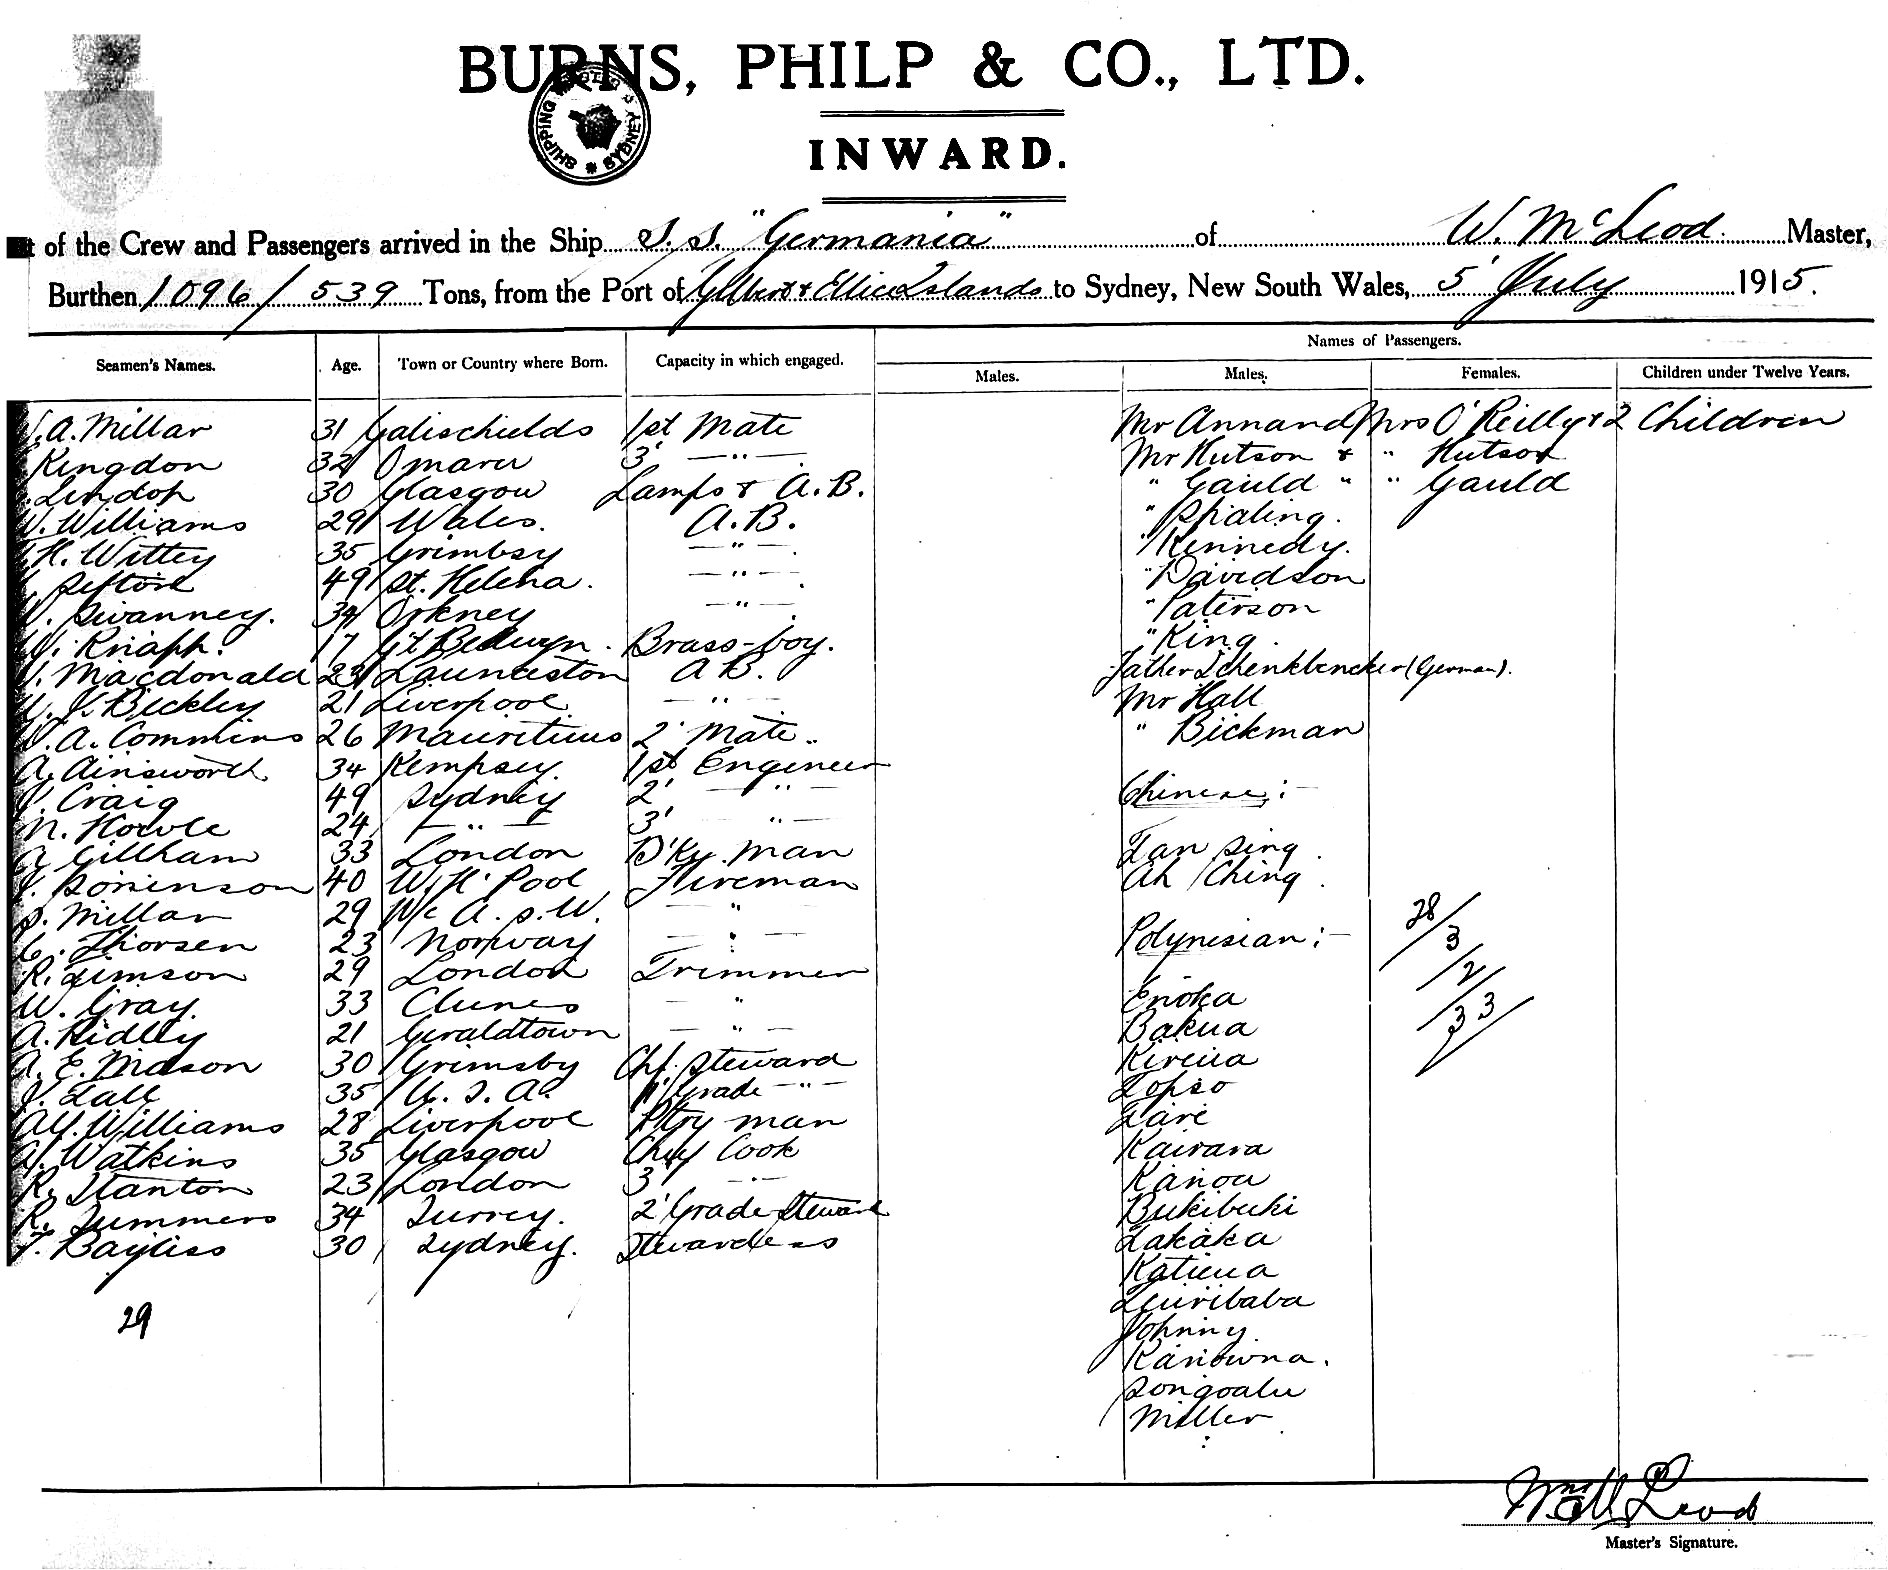 BURNS, PHILP & CO., LTD.
SHIPPING SYDNEY
INWARD.
of the Crew and Passengers arrived in the Ship S.S. "Germania" of W. McLeod Master,
Burthen 1096/539 Tons, from the Port of Gilbert & Ellice Islands to Sydney, New South Wales, 5' July 1915.
Names of Passengers.
Seamen's Names. Age. Town or Country where Born. Capacity in which engaged. Males. Males. Females. Children under Twelve Years.
A. Millar 31 Galischields 1st Mate Mr Annand Mrs O'Reilly & 2 Children
Kingdon 32 Omaru 3' —"— Mr Hutson & " Hutson
Lindop 30 Glasgow Lamps & A.B. " Gauld " " Gauld
Williams 29 Wales. A.B. " Spialing.
H. Wittey 35 Grimbsy —"— " Kennedy.
Sefton 49 St. Helena. —"— " Davidson
Swanney. 34 Orkney —"— " Paterson
Knapp. 17 Gt Bedwyn. Brass-boy. " King.
Macdonald 23 Launceston A B. Father (German).
J. Bickley 21 Liverpool —"— Mr Hall
A. Commins 26 Mauritius 2' Mate.. " Bickman
A. Ainsworth 34 Kempsey. 1st Engineer
Craig 49 Sydney 2' —"— Chinese:—
N. Howle 24 —"— 3' —"—
A. Gillham 33 London D'Ky. man Tan Sing.
40 W. H'Pool Fireman Ah Ching.
S. Millar 29 N/c A.S.W. —"—
C. Thorsen 23 Norway —"— Polynesian:— 28/3
R. Simson 29 London Trimmer /2/
W. Gray. 33 Clunes —"— Enoka 33
A. Ridley 21 Geraldtown —"— Bakua
A. E. Mason 30 Grimsby Chf. Steward Kireua
35 U.S.A. 1' Grade —"— Topso
Williams 28 Liverpool Ptry man Tare
Watkins 35 Glasgow Chef Cook Kairara
R. Stanton 23 London 3' —"— Kanoa
R. Summers 34 Surrey. 2' Grade Steward Bukibuki
F. Bayliss 30 Sydney. Stewardess Takaka
Katieua
Teuribaba
29 Johnny.
Kanowna.
Songoalu
Miller
Wm McLeod
Master's Signature.